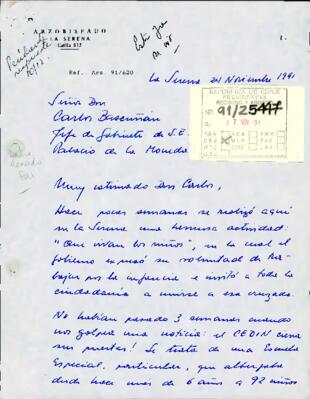 ARZOBISPADO
LA SERENA
Casilla 613
Pendiente
respuesta
Ref. Arz. 91/620
1.
La Serena 21 Noviembre 1991
REPUBLICA DE CHILE
PRESIDENCIA
NR. 91/25447
A: 27 NOV 91
Señor Don
Carlos Bascuñán
Jefe de Gabinete de S.E.
Palacio de la Moneda
Muy estimado Don Carlos,
Hace pocas semanas se realizó aquí
en La Serena una hermosa actividad:
"Que vivan los niños", en la cual el
gobierno expresó su voluntad de tra-
bajar por la infancia e invitó a toda la
ciudadanía a unirse a esa cruzada.
No habían pasado 3 semanas cuando
nos golpea una noticia: el CEDIN cierra
sus puertas! Se trata de una Escuela
Especial, particular, que albergaba
desde hace unos de 6 años a 92 niños